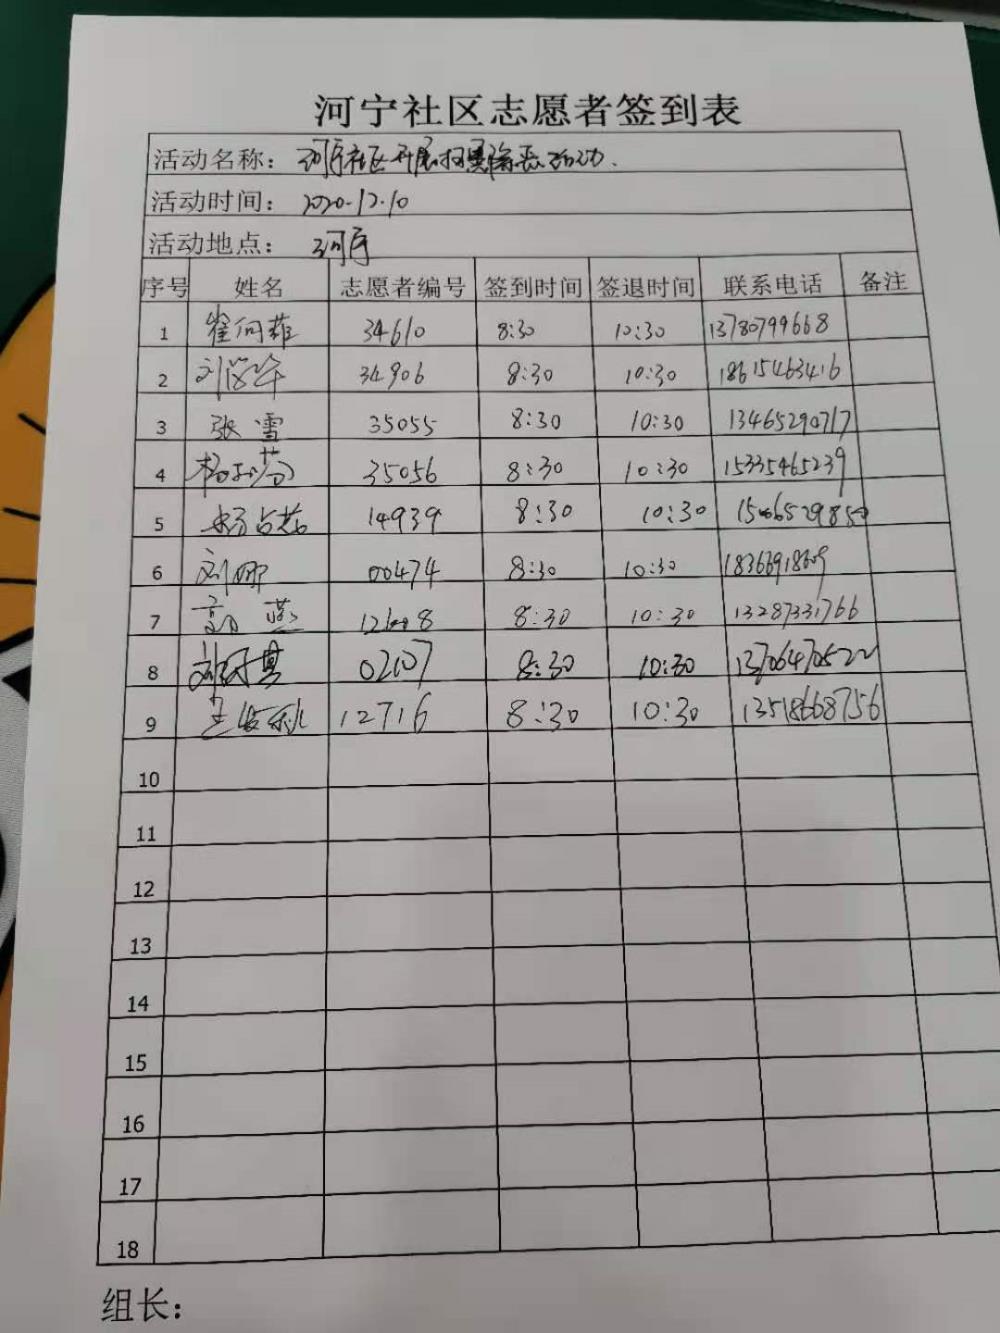 河宁社区志愿者签到表
活动名称： 河宁社区开展扫黑除恶活动.
活动时间： 2020.12.10
活动地点： 河宁
序号 姓名 志愿者编号 签到时间 签退时间 联系电话 备注
1 34610 8:30 10:30 13780799668
2 34906 8:30 10:30 18615463416
3 张雪 35055 8:30 10:30 13465290717
4 35056 8:30 10:30 15335465239
5 14939 8:30 10:30
6 刘娜 00474 8:30 10:30
7 8:30 10:30 13287331766
8 02107 8:30 10:30 13706470522
9 12716 8:30 10:30 13518668756
10
11
12
13
14
15
16
17
18
组长：